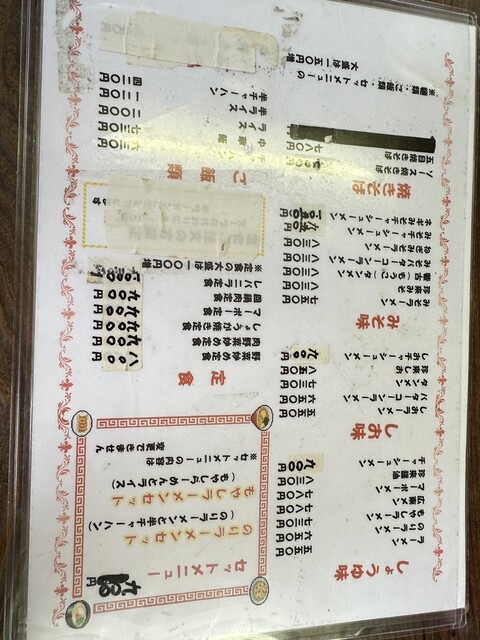 しょうゆ味
ラーメン 五五〇円
のりラーメン
もやしラーメン 七三〇円
広東メン
マーボーメン 八七〇円
珍来醤油 八三〇円
チャーシューメン 九〇〇円
しお味
しおラーメン 五五〇円
バターコーンラーメン 六五〇円
タンメン 七三〇円
珍来しお 八五〇円
しおチャーシューメン 九〇〇円
みそ味
みそラーメン 七五〇円
珍来みそ 八三〇円
蒙古(もうこ)タンメン 八三〇円
みそバターコーンラーメン 八三〇円
ねぎみそラーメン 八三〇円
みそチャーシューメン 九五〇円
ネギみそチャーシューメン 一〇五〇円
焼きそば
ソース焼きそば
五目焼きそば 七八〇円
※麺類・ご飯類・セットメニューの
大盛は一五〇円増
セットメニュー
九〇〇円
のりラーメンセット
(のりラーメンと半チャーハン)
もやしラーメンセット
(もやしらーめんとライス)
※セットメニューの内容は
変更できません
定食
野菜炒め定食 八〇〇円
肉野菜炒め定食 九〇〇円
しょうが焼き定食 九〇〇円
マーボ定食 九〇〇円
回鍋肉定食 九〇〇円
レバニラ定食
※定食大盛は一〇〇円増
ご飯類
中華丼 七三〇円
ライス 二三〇円
半ライス 一三〇円
半チャーハン 四二〇円